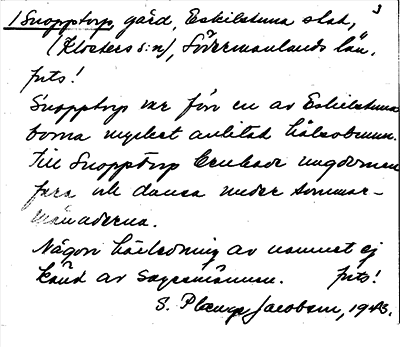 3
1 Snopptorp, gård, Eskilstuna stad,
(Klosters s:n), Södermanlands län.
frts!
Snopptorp var förr en av Eskilstuna
borna mycket anlitad hälsobrunn.
Till Snopptorp brukade ungdomen
fara och dansa under sommar-
månaderna.
Någon härledning av namnet ej
känd av sagesmännen. frts!
S. Jacobson, 1943.